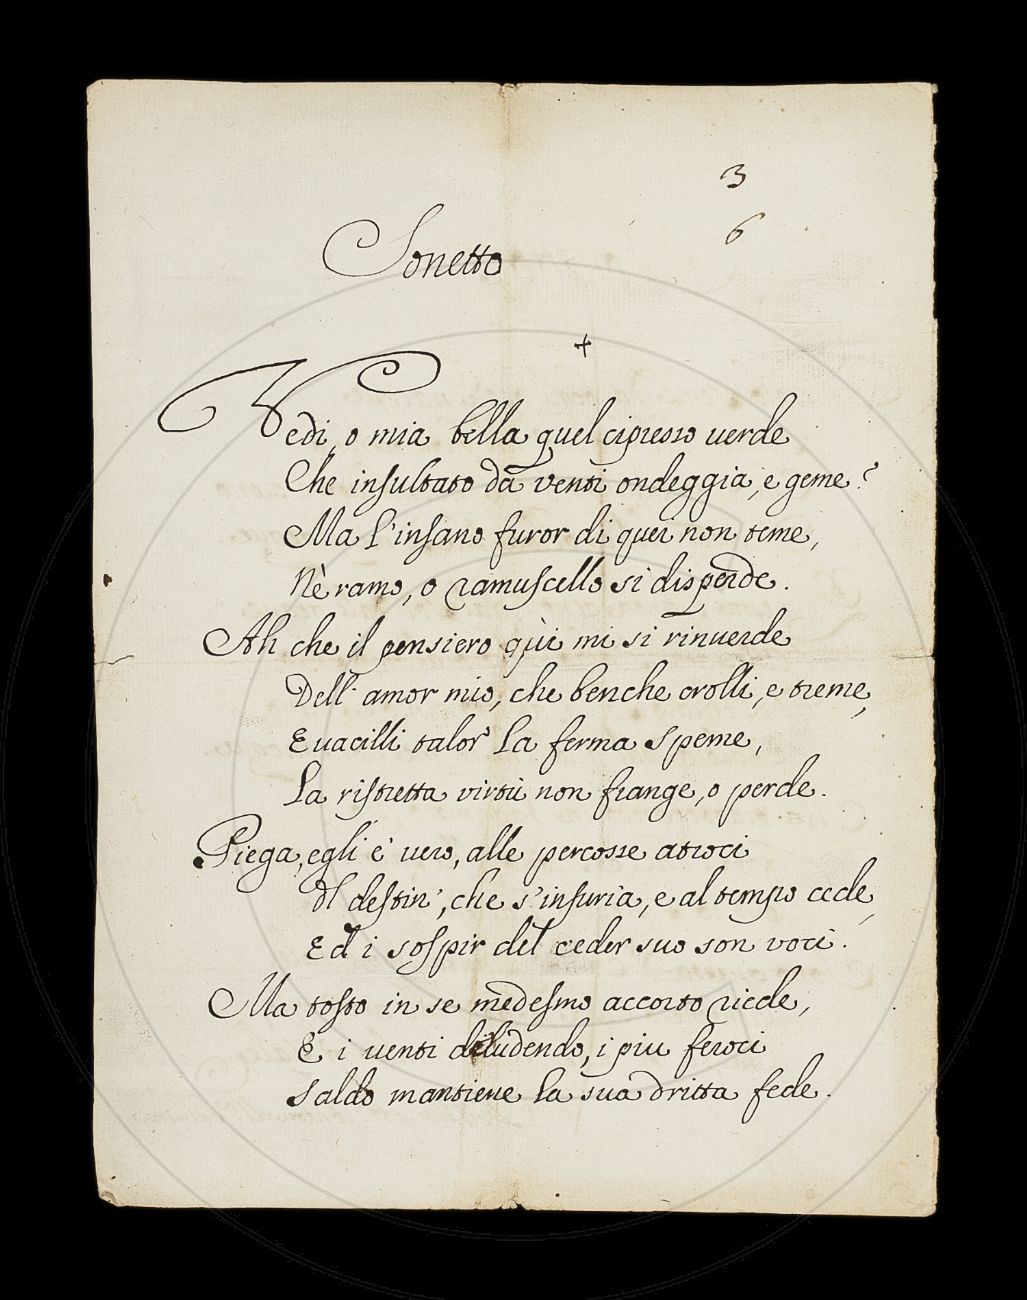 3
6
Sonetto
+
Vedi, o mia bella quel cipresso uerde
Che insultato da venti ondeggia, e geme?
Ma l'insano furor di quei non teme,
Nè ramo, o ramuscello si disperde.
Ah che il pensiero qùi mi si rinuerde
Dell' amor mio, che benche crolli, e treme,
E uacilli talor' la ferma speme,
La ristretta virtù non frange, o perde.
Piega, egli è uero, alle percosse atroci
Il destin', che s'infuria, e al tempo cede,
Ed i sospir del ceder suo son voci.
Ma tosto in se medesmo accorto riede,
E i uenti deludendo, i piu feroci
Saldo mantiene la sua dritta fede.